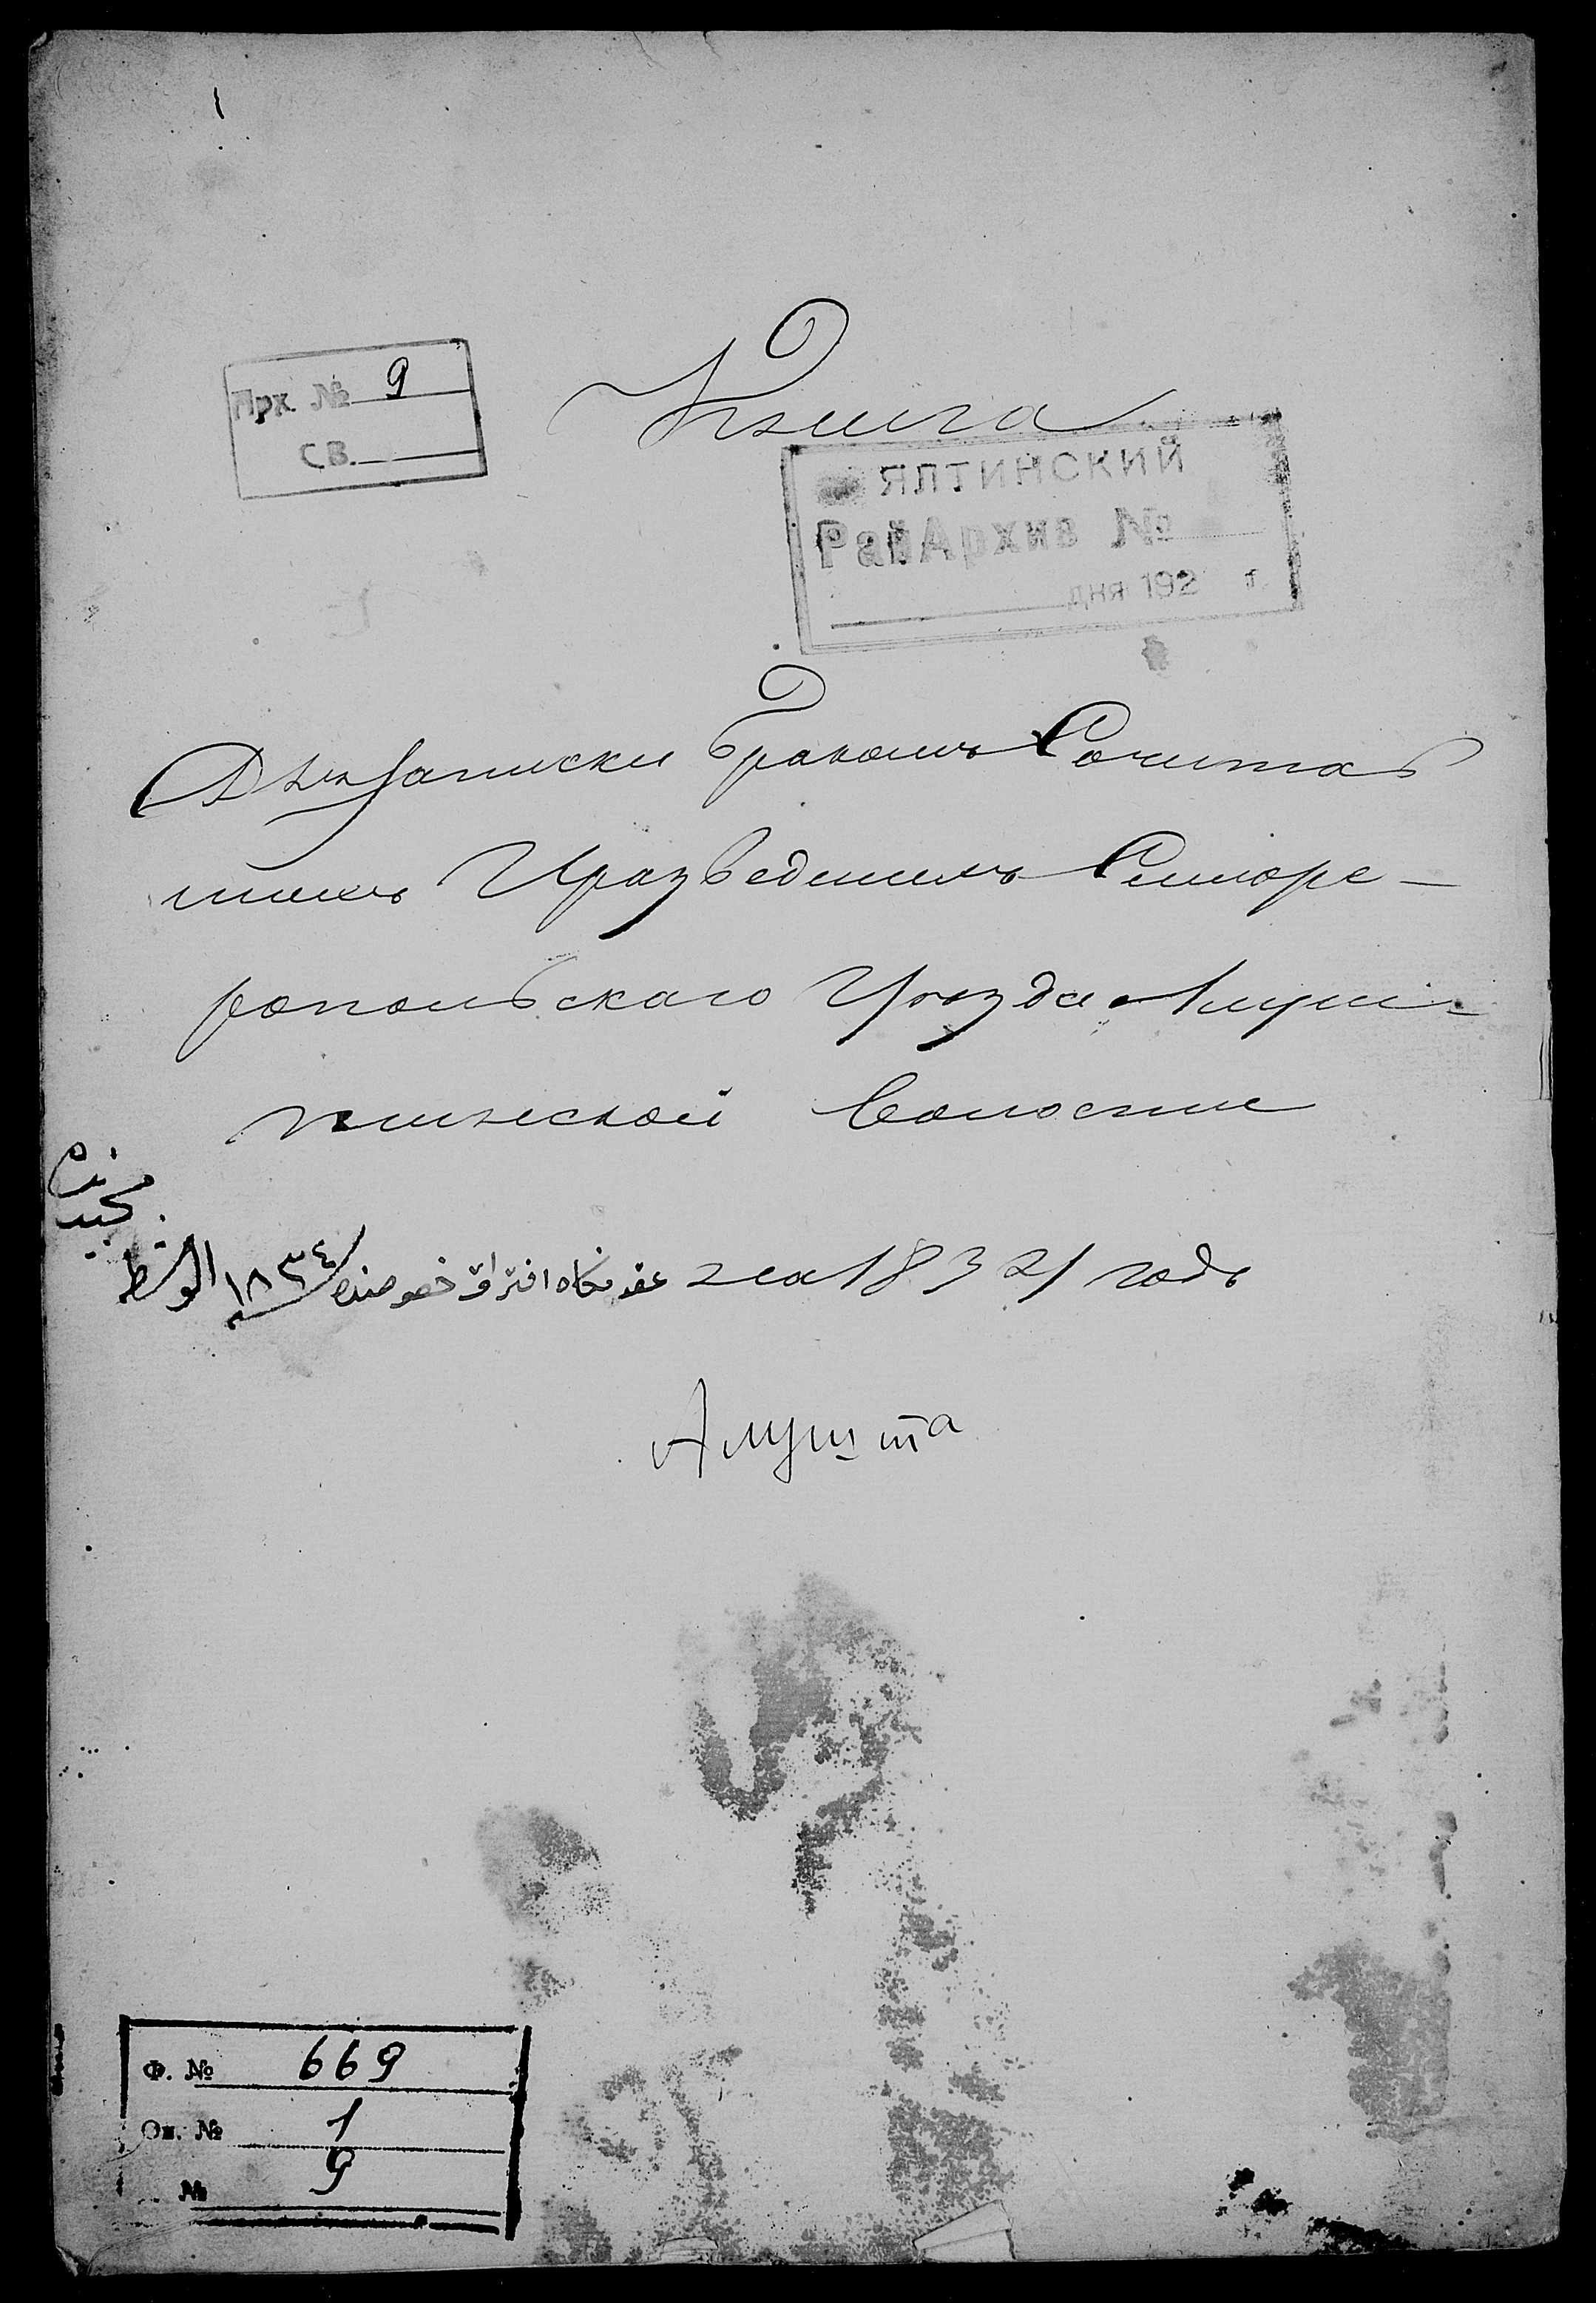 Прх. № 9
св.
Книга
ЯЛТИНСКИЙ
РайАрхив №
дня 192 г.
Для записки Браком Сочитав
шихъ И разведенихъ Симфре-
ропольскаго Уезда Алуш-
тинской Волости
عقد نكاه افتراق خصوصنده ١٨٣٤
на 1834 годъ
Алушта
Ф. № 669
Оп. № 1
№ 9